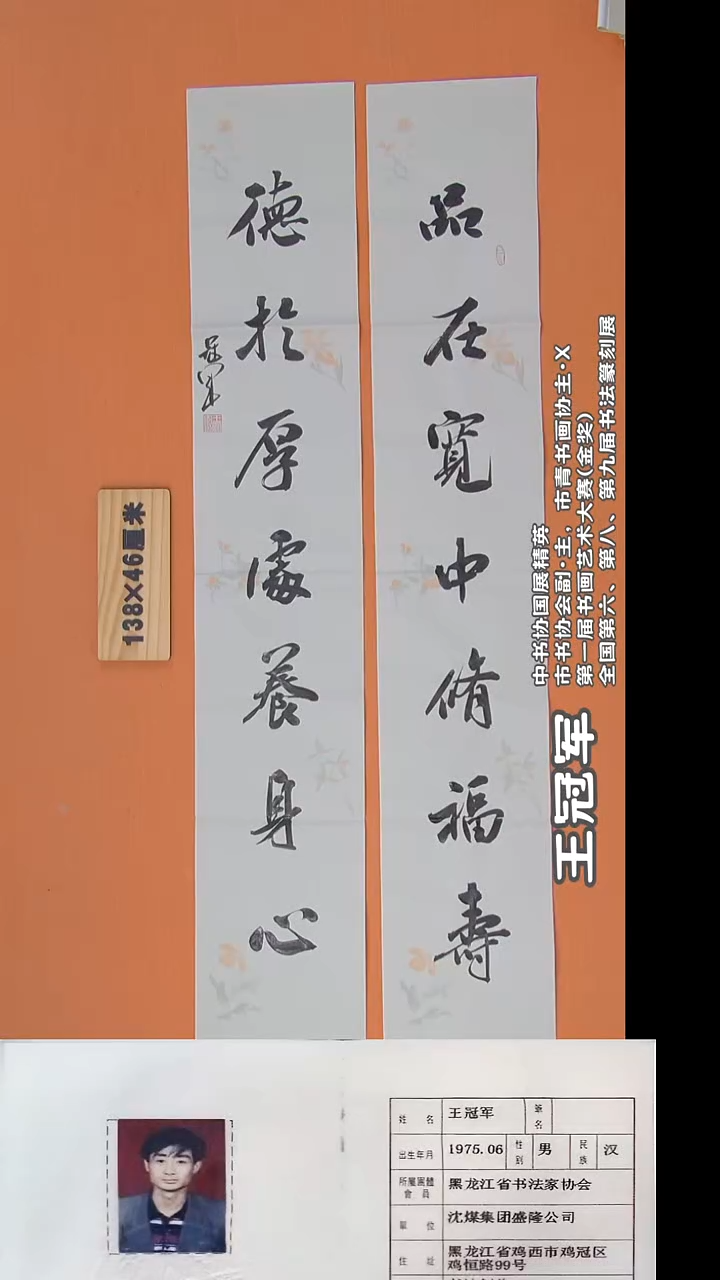 品在寬中脩福壽
德於厚處養身心
冠軍
138×46厘米
中书协国展精英
市书协会副·主，市青书画协主·X
第一届书画艺术大赛(金奖)
全国第六、第八、第九届书法篆刻展
王冠军
姓 名 王冠军 筆名
出生年月 1975.06 性别 男 民族 汉
所屬團體會員 黑龙江省书法家协会
單 位 沈煤集团盛隆公司
住 址 黑龙江省鸡西市鸡冠区
鸡恒路99号